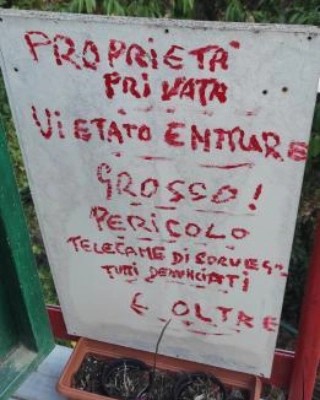 PROPRIETÀ
PRIVATA
VIETATO ENTRARE
GROSSO!
PERICOLO
TELECAME DI SORVEGL
TUTTI DENUNCIATI
E OLTRE